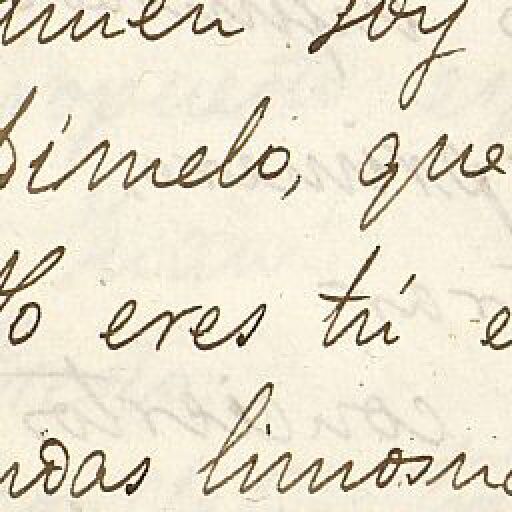 quien soy
bímelo, que
Yo eres tú e
ndas limosna